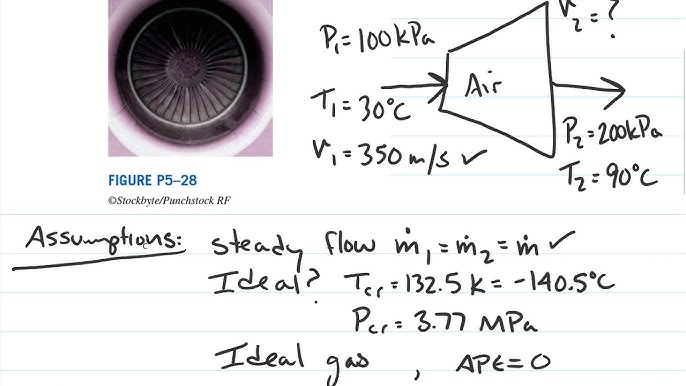 P₁=100kPa
V₂=?
Air
T₁=30°C
V₁=350 m/s ✓
P₂=200kPa
T₂=90°C
FIGURE P5–28
©Stockbyte/Punchstock RF
Assumptions: steady flow ṁ₁=ṁ₂=ṁ ✓
Ideal? Tcr=132.5 K=-140.5°C
Pcr=3.77 MPa
Ideal gas, ΔPE=0